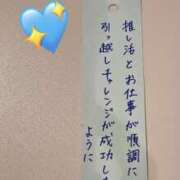 推し活とお仕事が順調に
引っ越しチャレンジが成功します
ように